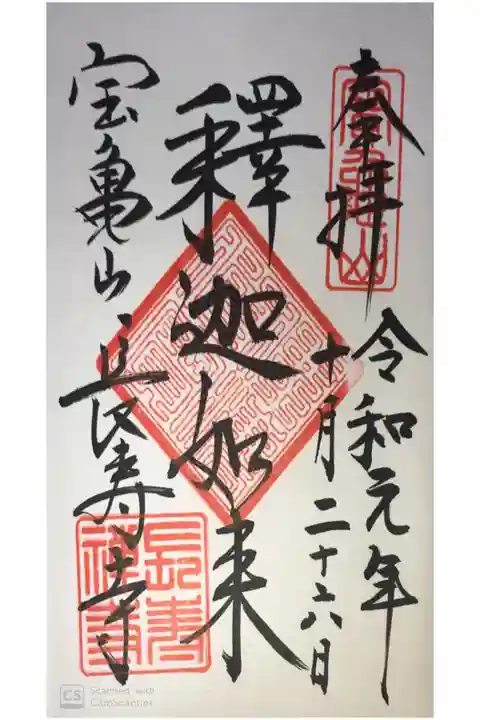 奉拝
令和元年
十月二十六日
釋迦如来
宝亀山 長寿寺
宝亀山
長寿禅寺
CS Scanned with
CamScanner